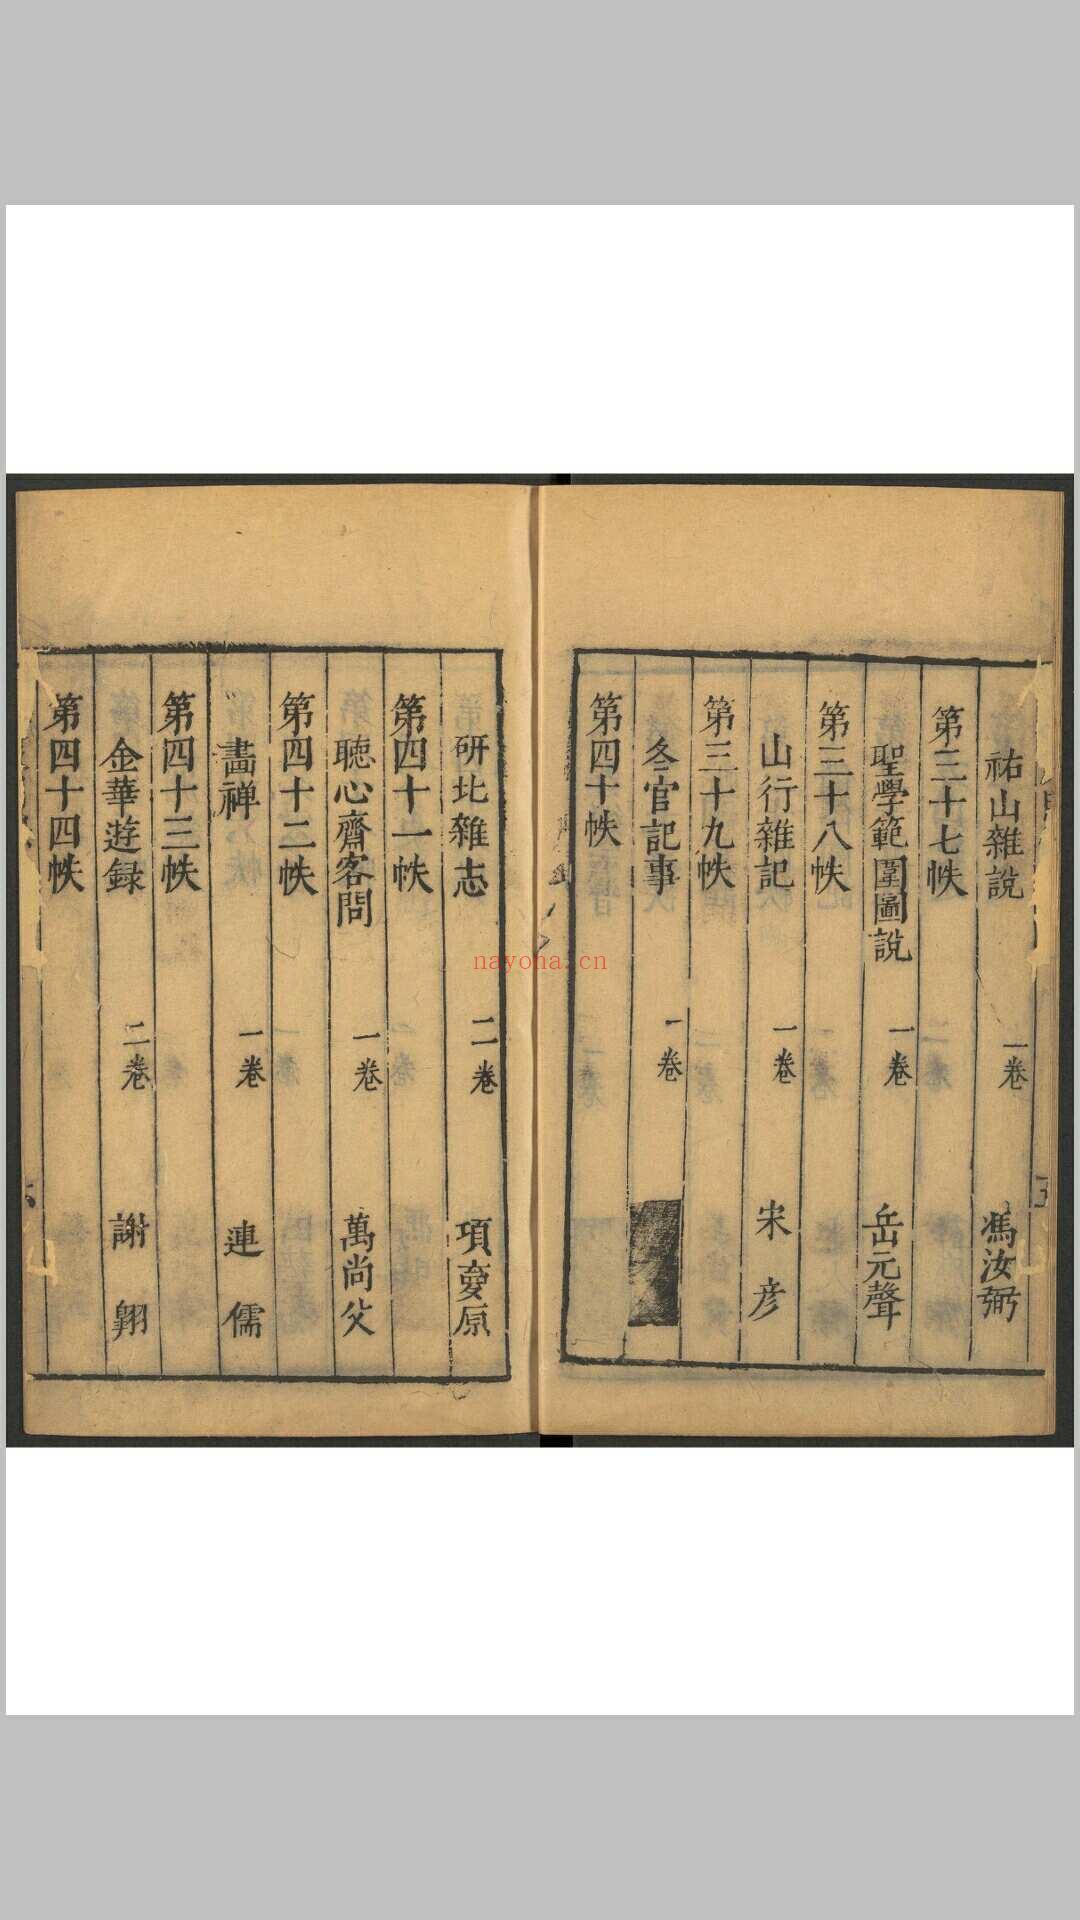 祐山雜說 一卷 馮汝弼
第三十七帙
聖學範圍圖說 一卷 岳元聲
第三十八帙
山行雜記 一卷 宋彥
第三十九帙
冬官記事 一卷
第四十帙
研北雜志 二卷 項䕫原
第四十一帙
聽心齋客問 一卷 萬尚父
第四十二帙
畫禪 一卷 蓮儒
第四十三帙
金華遊録 二卷 謝翱
第四十四帙
nayona.cn